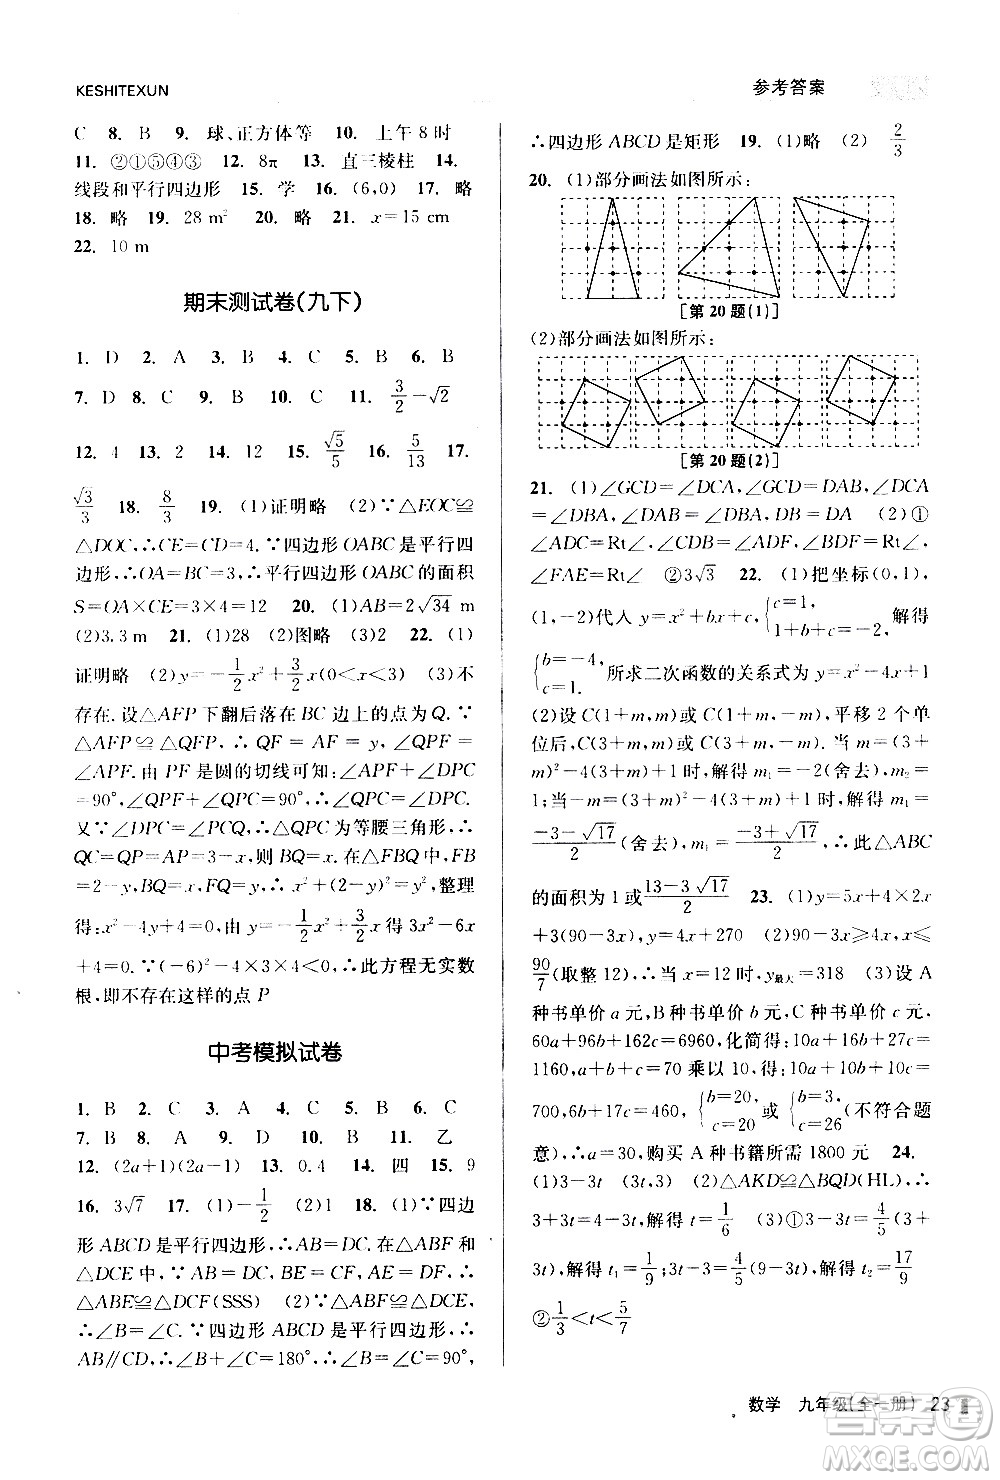 KESHITEXUN
参考答案
C 8. B 9. 球、正方体等 10. 上午 8 时
11. ②①⑤④③ 12. 8π 13. 直三棱柱 14.
线段和平行四边形 15. 学 16. (6,0) 17. 略
18. 略 19. 28 m² 20. 略 21. x=15 cm
22. 10 m
期末测试卷(九下)
1. D 2. A 3. B 4. C 5. B 6. B
7. D 8. C 9. B 10. C 11. 3/2-√2
12. 4 13. 2 14. C 15. √5/5 16. 5/13 17.
√3/3 18. 8/3 19. (1)证明略 (2)∵△EOC≌
△DOC,∴CE=CD=4.∵四边形 OABC 是平行四
边形,∴OA=BC=3,∴平行四边形 OABC 的面积
S=OA×CE=3×4=12 20. (1)AB=2√34 m
(2)3.3 m 21. (1)28 (2)图略 (3)2 22. (1)
证明略 (2)y=-1/2x²+3/2x(0<x<3) (3)不
存在. 设△AFP 下翻后落在 BC 边上的点为 Q. ∵
△AFP≌△QFP,∴QF=AF=y,∠QPF=
∠APF. 由 PF 是圆的切线可知:∠APF+∠DPC
=90°,∠QPF+∠QPC=90°,∴∠DPC=∠QPC.
又∵∠DPC=∠PCQ,∴△QPC 为等腰三角形,∴
QC=QP=AP=3-x,则 BQ=x. 在△FBQ 中,FB
=2-y,BQ=x,QF=y,∴x²+(2-y)²=y²,整理
得:x²-4y+4=0,由 y=-1/2x²+3/2x 得 3x²-6x
+4=0.∵(-6)²-4×3×4<0,∴此方程无实数
根,即不存在这样的点 P
中考模拟试卷
1. B 2. C 3. A 4. C 5. B 6. C
7. B 8. A 9. D 10. B 11. 乙
12. (2a+1)(2a-1) 13. 0.4 14. 四 15. 9
16. 3√7 17. (1)-1/2 (2)1 18. (1)∵四边
形 ABCD 是平行四边形,∴AB=DC. 在△ABF 和
△DCE 中,∵AB=DC,BE=CF,AE=DF,∴
△ABE≌△DCF(SSS) (2)∵△ABF≌△DCE,
∴∠B=∠C.∵四边形 ABCD 是平行四边形,∴
AB∥CD,∴∠B+∠C=180°,∴∠B=∠C=90°,
∴四边形 ABCD 是矩形 19. (1)略 (2) 2/3
20. (1)部分画法如图所示:
[第 20 题(1)]
(2)部分画法如图所示:
[第 20 题(2)]
21. (1)∠GCD=∠DCA,∠GCD=DAB,∠DCA
=∠DBA,∠DAB=∠DBA,DB=DA (2)①
∠ADC=Rt∠,∠BDC=∠ADF,∠BDF=Rt∠,
∠FAE=Rt∠ ②3√3 22. (1)把坐标(0,1),
(1,-2)代入 y=x²+bx+c,{c=1, 1+b+c=-2, 解得
{b=-4, c=1. 所求二次函数的关系式为 y=x²-4x+1
(2)设 C(1+m,m)或 C(1+m,-m),平移 2 个单
位后,C(3+m,m)或 C(3+m,-m). 当 m=(3+
m)²-4(3+m)+1 时,解得 m₁=-2(舍去),m₂=
1;当-m=(3+m)²-4(3+m)+1 时,解得 m₁=
(-3-√17)/2(舍去),m₁=(-3+√17)/2,∴△ABC
的面积为 1 或(13-3√17)/2 23. (1)y=5x+4×2x
+3(90-3x),y=4x+270 (2)90-3x≥x,x≤
90/7(取整 12),∴当 x=12 时,y最大=318 (3)设 A
种书单价 a 元,B 种书单价 b 元,C 种书单价 c 元,
60a+96b+162c=6960,化简得:10a+16b+27c=
1160,7a+10b+20c=830 乘以 10,7b+11c=
700,7b+17c=460,{b=20, c=20 或{b=3, c=26 (不符合题
意),∴a=30,∴购买 A 种书籍所需 1800 元 24.
(1)3-3t (2)△AKD≌△BQD(HL),∴
3+3t=4-3t,解得 t=1/6 (3)①3-3t=4/5(9+
3t),解得 t₁=1/9;3t-3=4/5(9-3t),解得 t₂=17/9
②1/3<t<5/7
数学 九年级(全一册) 23